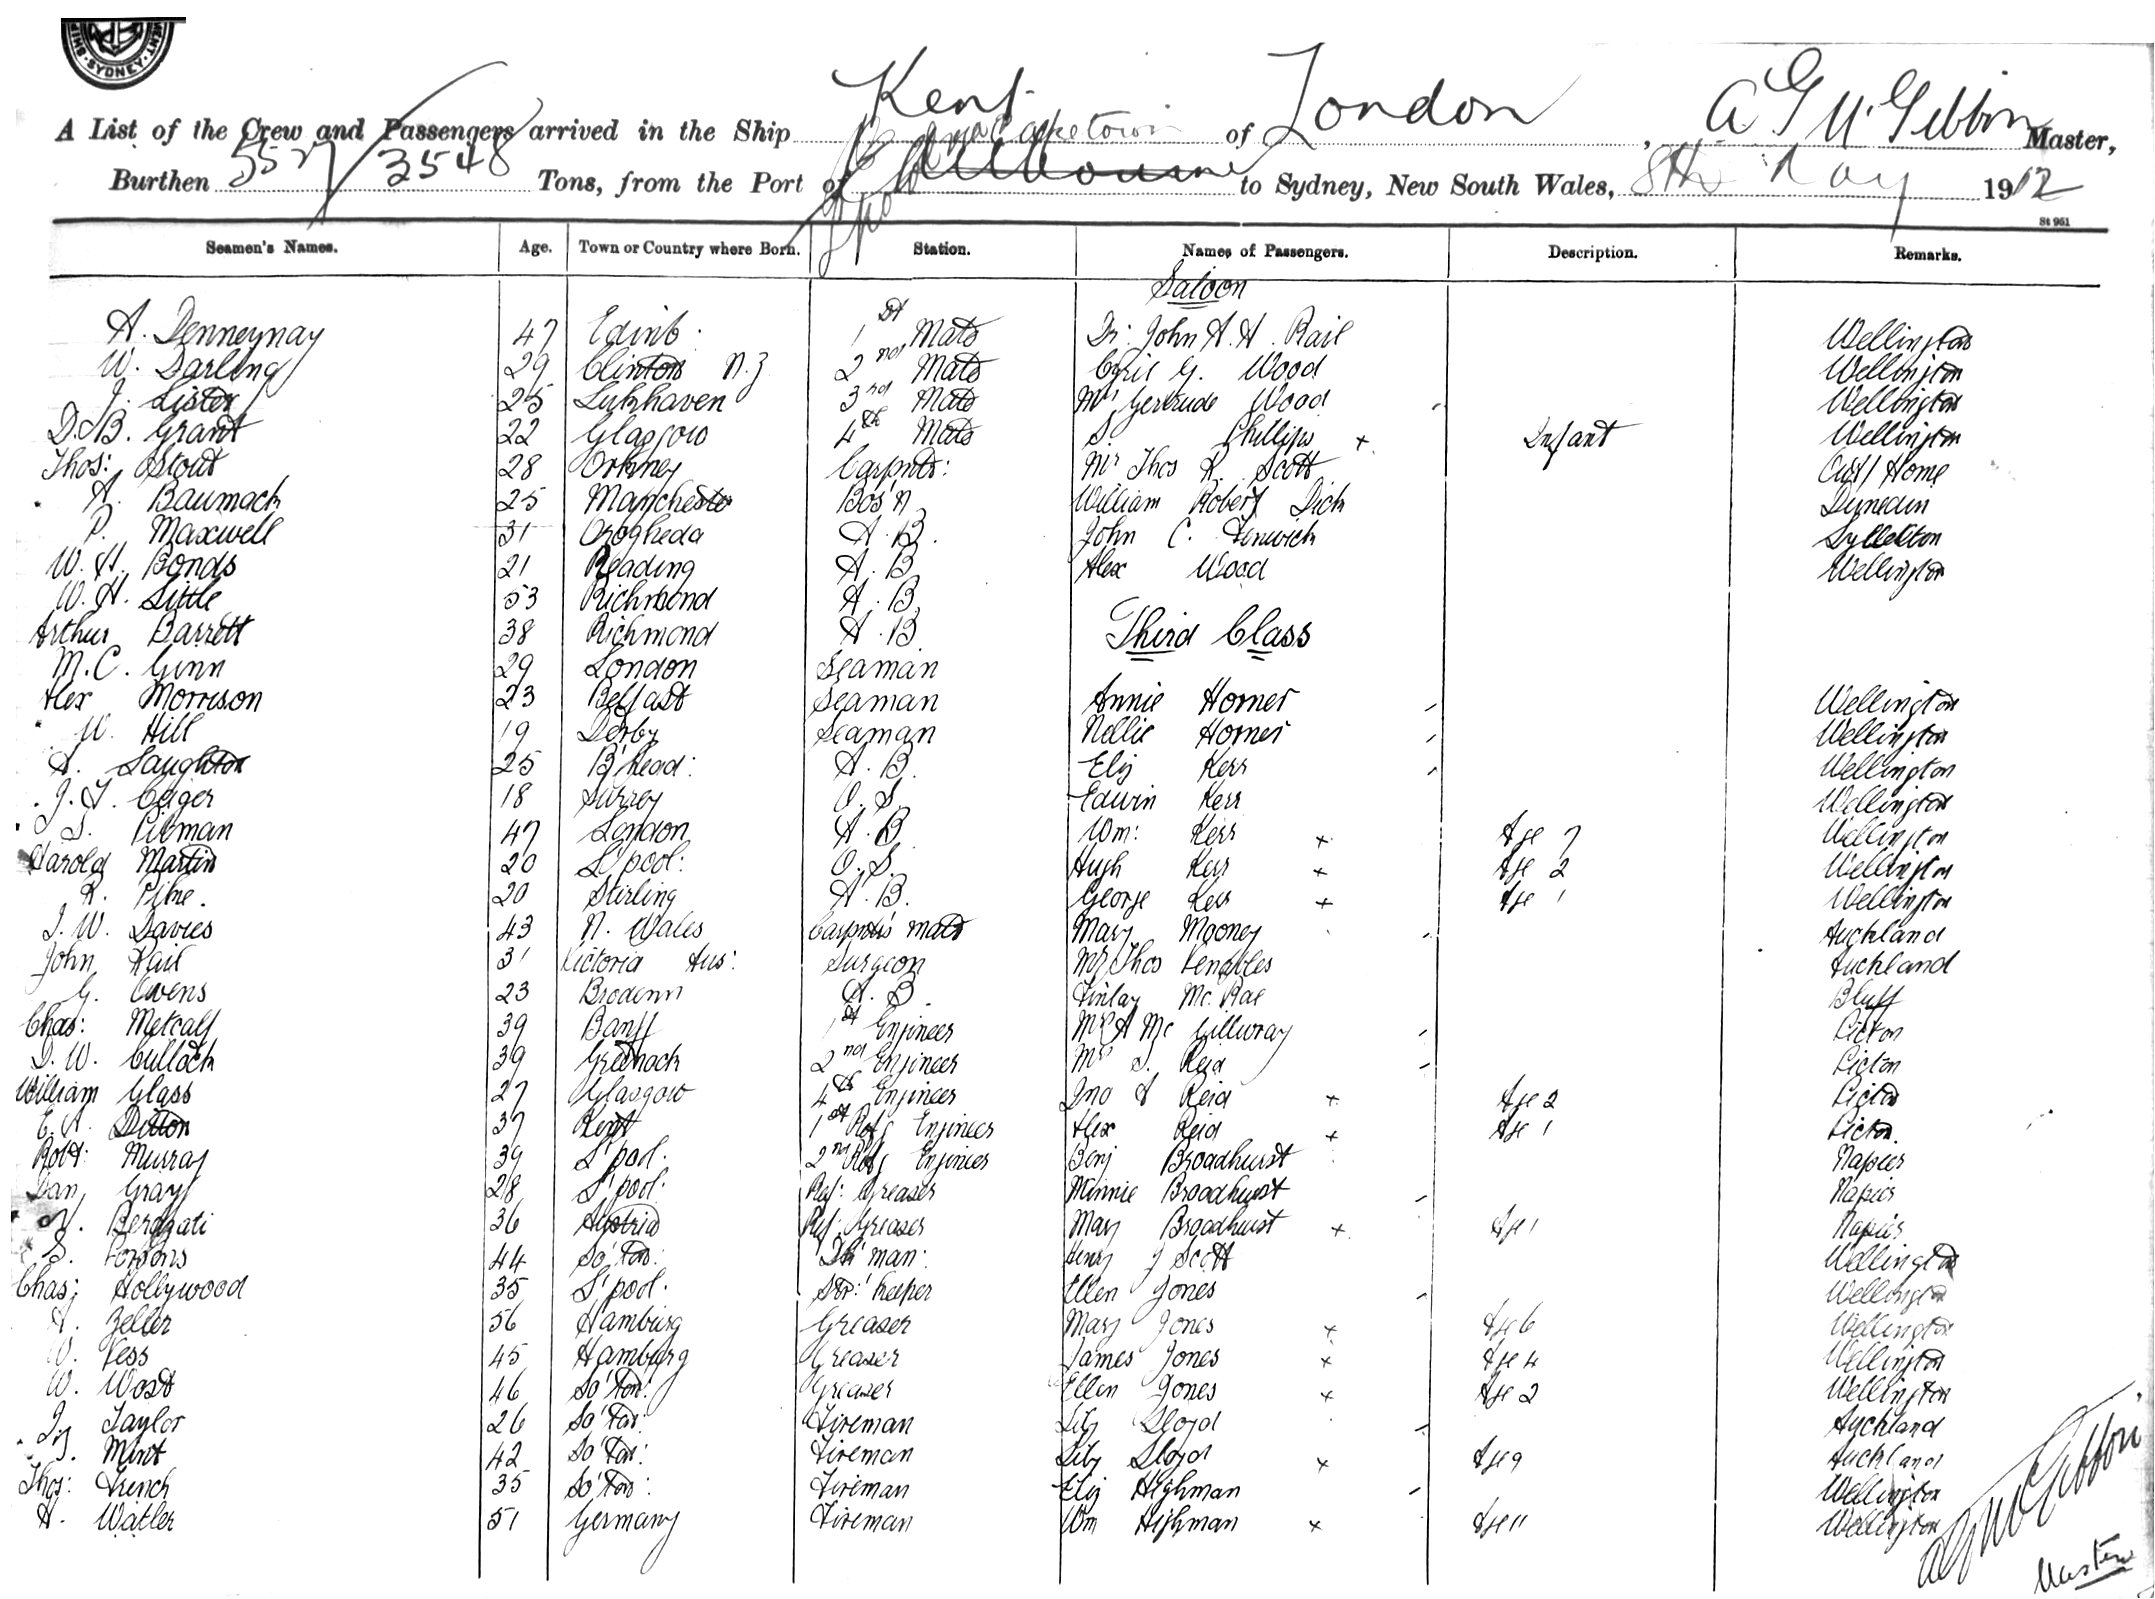 MENT. SYDNEY. SHIP
A List of the Crew and Passengers arrived in the Ship Kent of London, A G McGibbon Master,
Burthen 5527 / 3548 Tons, from the Port of Melbourne to Sydney, New South Wales, 8th May 1912
St 951
Seamen's Names. Age. Town or Country where Born. Station. Names of Passengers. Description. Remarks.
Saloon
A. Denneynay 47 Edinb: 1st Mate Dr: John A. H. Rail Wellington
W. Darling 29 Clinton N.Z 2nd Mate Cyril G. Wood Wellington
J. Lister 25 Lukhaven 3rd Mate Mrs Gertrude Wood Wellington
D. B. Grant 22 Glasgow 4th Mate S. Phillips x Infant Wellington
Thos: Stout 28 Orkney Carpntr: Mr Thos R. Scott Aust Home
A. Baumach 25 Manchester Bos'n William Robert Dick Dunedin
P. Maxwell 31 Drogheda A. B. John C. Fenwick Lyttelton
W. H. Bonds 21 Reading A. B Alex Wood Wellington
W. H. Little 53 Richmond A. B.
Arthur Barrett 38 Richmond A. B. Third Class
M. C. Ginn 29 London Seaman
Alex Morrison 23 Belfast Seaman Annie Horner Wellington
W. Hill 19 Derby Seaman Nellie Horner Wellington
A. Laughton 25 B'head: A. B. Eliz Kerr Wellington
J. T. Geiger 18 Surrey O. S. Edwin Kerr Wellington
S. Pitman 47 London A. B. Wm: Kerr x Age 7 Wellington
Harold Martin 20 L'pool: O. S. Hugh Kerr x Age 2 Wellington
R. Pine. 20 Stirling A. B. George Kerr x Age 1 Wellington
J. W. Davies 43 N. Wales Carpntr's mate Mary Mooney Auckland
John Rail 31 Victoria Aus: Surgeon Mr Thos Venables Auckland
G. Owens 23 A. B. Finlay Mc. Rae Bluff
Chas: Metcalf 39 Banff 1st Engineer Mrs A Mc Gillivray Picton
D. W. Cullock 39 Greenock 2nd Engineer Mrs S. Reid Picton
William Glass 27 Glasgow 4th Engineer Jno A Reid x Age 2 Picton
E. A. Ditton 37 Kent 1st Refg Engineer Alex Reid x Age 1 Picton.
Robt: Murray 39 L'pool: 2nd Refg Engineer Benj Broadhurst Napier
Dan Gray 28 L'pool: Ref: Greaser Minnie Broadhurst Napier
Berdgati 36 Austria Ref: Greaser Mary Broadhurst x Age 1 Napier
S. Parsons 44 So'ton: Dk'man: Henry J Scott Wellington
Chas: Hollywood 35 L'pool: Str: keeper Ellen Jones Wellington
A. Zeller 56 Hamburg Greaser Mary Jones x Age 6 Wellington
W. Vess 45 Hamburg Greaser James Jones x Age 4 Wellington
W. West 46 So'ton: Greaser Ellen Jones x Age 2 Wellington
Taylor 26 So'ton: Fireman Lily Lloyd Auckland
J. Mint 42 So'ton: Fireman Lily Lloyd x Age 9 Auckland
Thos: French 35 So'ton: Fireman Eliz Highman Wellington
H. Watler 51 Germany Fireman Wm Highman x Age 11 Wellington
A G McGibbon
Master